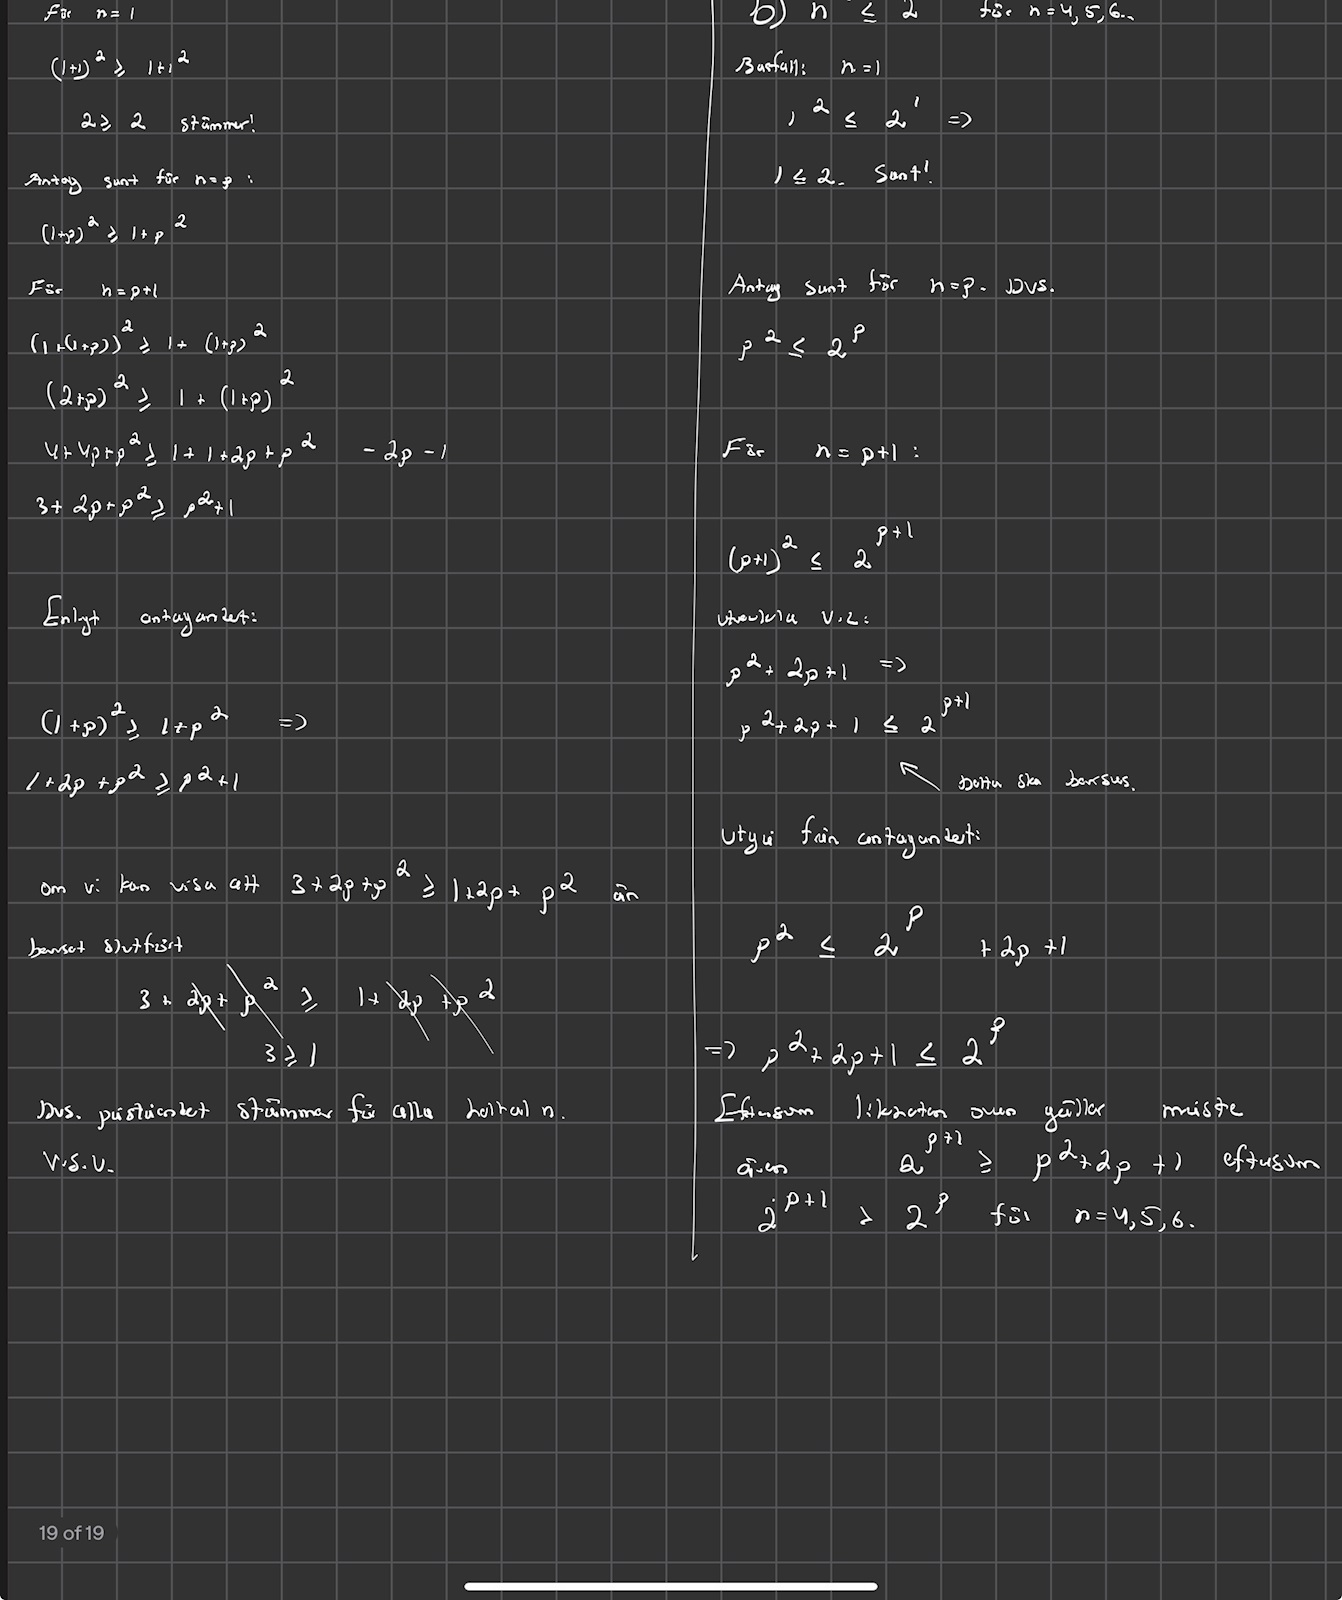 För n=1
(1+1)² ≥ 1+1²
2 ≥ 2 stämmer!
Antag sant för n=p:
(1+p)² ≥ 1+p²
För n=p+1
(1+(1+p))² ≥ 1+ (1+p)²
(2+p)² ≥ 1 + (1+p)²
4+4p+p² ≥ 1+1+2p+p² -2p-1
3+2p+p² ≥ p²+1
Enligt antagandet:
(1+p)² ≥ 1+p² =>
1+2p+p² ≥ p²+1
om vi kan visa att 3+2p+p² ≥ 1+2p+p² än
beviset slutfört
3+2p+p² ≥ 1+2p+p²
3 ≥ 1
Dvs. påståendet stämmer för alla heltal n.
V.S.V.
b) n ≤ 2 för n=4,5,6..
Basfall: n=1
1² ≤ 2¹ =>
1 ≤ 2. Sant!
Antag sant för n=p. Dvs.
p² ≤ 2^p
För n=p+1:
(p+1)² ≤ 2^(p+1)
utveckla V.L:
p²+2p+1 =>
p²+2p+1 ≤ 2^(p+1)
Detta ska bevisas.
Utgå från antagandet:
p² ≤ 2^p +2p+1
=> p²+2p+1 ≤ 2^p
Eftersom likheten ovan gäller måste
även 2^(p+1) ≥ p²+2p+1 eftersom
2^(p+1) > 2^p för n=4,5,6.
19 of 19